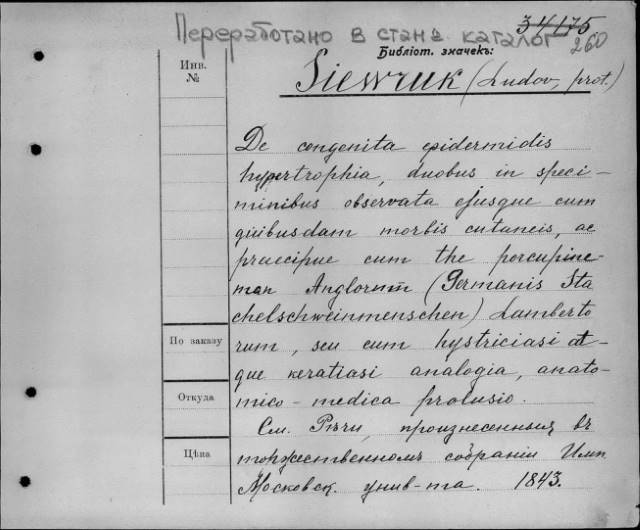 Переработано в станд каталог
34175
260
Библіот. значекъ:
Инв.
№
Siewruk (Ludov, prot.)
De congenita epidermidis
hypertrophia, duobus in speci-
minibus observata ejusque cum
quibusdam morbis cutaneis, ac
praecipue cum the porcupine-
man Anglorum (Germanis Sta
chelschweinmenschen) Lamberto
rum, seu cum hystriciasi at-
que keratiasi analogia, anato-
mico-medica prolusio.
См. Рѣчи, произнесенныя въ
торжественномъ собраніи Имп.
Московск. унив-та. 1843.
По заказу
Откуда
Цѣна